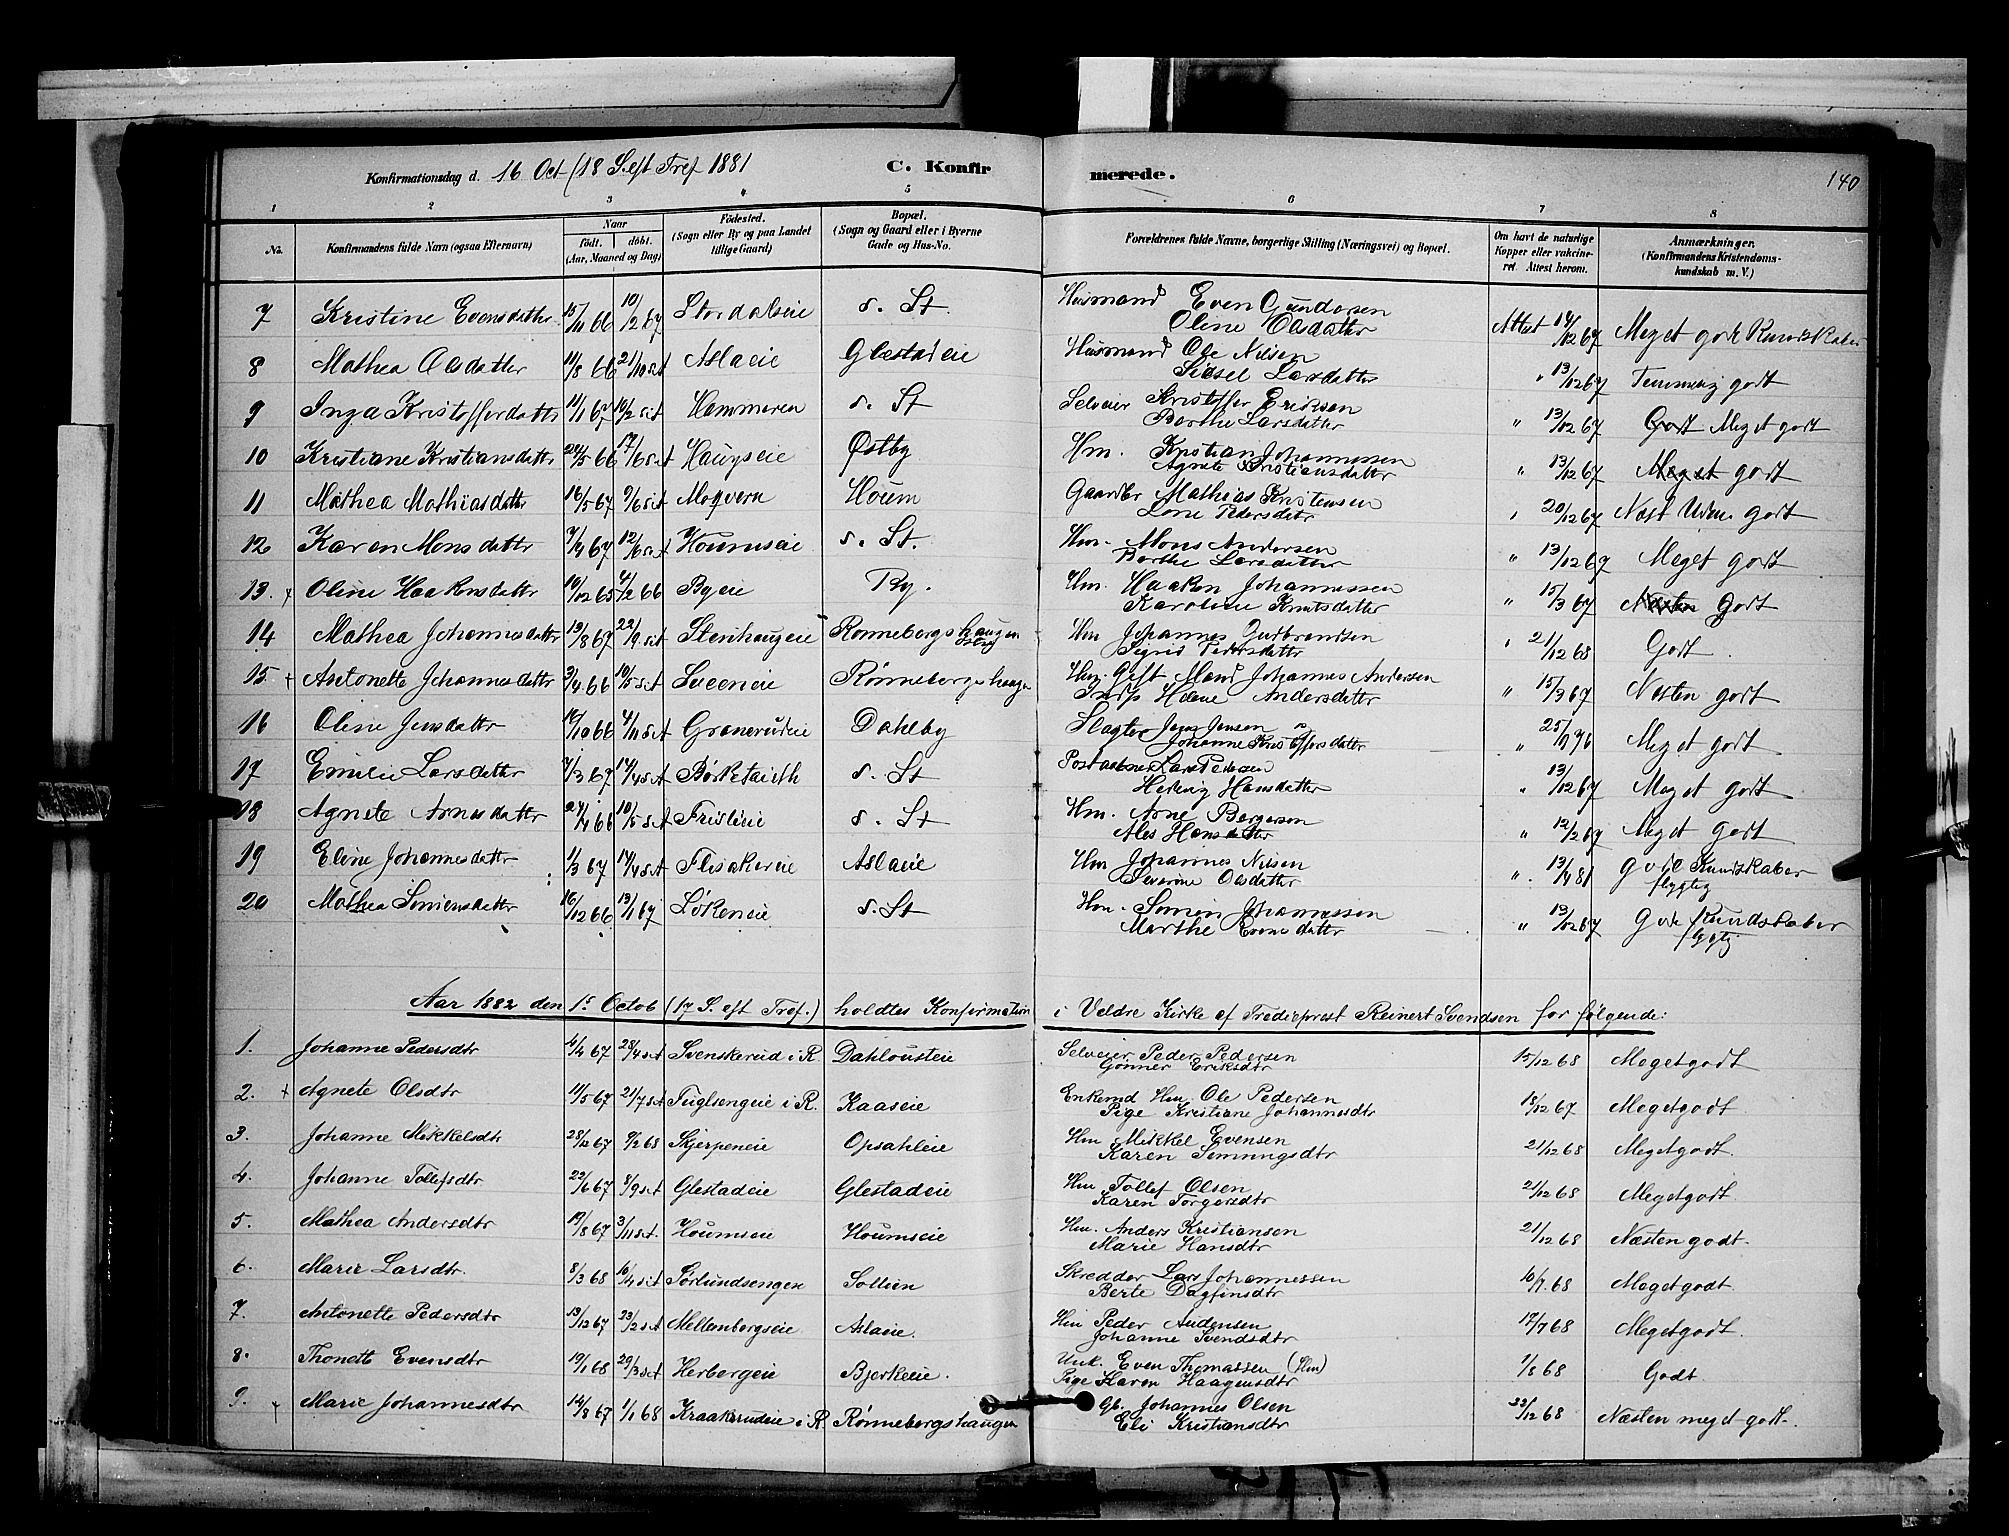 Konfirmationsdag d. 16 Oct (18 S. eft Tref 1881 C. Konfirmerede. 140
1 2 3 4 5 6 7 8
No. Konfirmandens fulde Navn (ogsaa Efternavn) Naar født. døbt. (Aar, Maaned og Dag) Fødested. (Sogn eller By og paa Landet tillige Gaard) Bopæl. (Sogn og Gaard eller i Byerne Gade og Hus-No. Forældrenes fulde Navne, borgerlige Stilling (Næringsvei) og Bopæl. Om havt de naturlige Kopper eller vakcineret Attest herom. Anmærkninger. (Konfirmandens Kristendomskundskab m. V.)
7 Kristine Evensdattr 15/11 66 10/12 67 Stordalseie s. St Husmand Even Gundersen Oline Olsdattr Attest 14/12 67 Meget gode Kundskaber
8 Mathea Olsdatter 11/8 66 21/10 s.A Aslaeie Glestadeie Husmand Ole Nilsen Sidsel Larsdatter " 13/12 67 Temmelig godt
9 Inga Kristofferdattr 11/1 67 10/2 s.A Hammeren s. St Selveier Kristoffer Eriksen Berthe Larsdatter " 13/12 67 Godt Meget godt
10 Kristiane Kristiansdattr 24/5 66 17/6 s.A Haugseie Østby Hm. Kristian Johannessen Agnete Kristiansdatter " 13/12 67 Meget godt
11 Mathea Mathiasdattr 16/5 67 9/6 s.A Moqvern Houm Gaardbr Mathias Kristensen Lone Pedersdattr " 20/12 67 Næst Uden godt
12 Karen Monsdattr 7/4 67 12/6 s.A Houmseie s. St. Hm. Mons Andersen Berthe Larsdatter " 13/12 67 Meget godt
13. + Oline Haakensdatter 10/12 65 4/2 66 Byeie By. Hm. Haaken Johannessen Karoline Knutsdatter " 15/3 67 Næsten Godt
14 Mathea Johannesdatter 13/8 67 22/9 s.A Stenhaugeie Rønnebergshaugen Hm Johannes Gudbrandsen Sigrid Pedersdattr " 21/12 68 Godt.
15. + Antonette Johannesdattr 3/4 66 10/5 s.A Sveeneie Rønnebergshaugen Hm. Gift Mand Johannes Andersen Helene Andersdatter " 15/3 67 Næsten godt
16 Oline Jensdattr 14/10 66 4/11 s.A Granerudeie Dahlby Slagter Jens Jensen Johanne Kristoffersdatter " 25/ Meget godt
17 Emilie Larsdatter 7/3 67 14/4 s.A s. St Lars Pedersen Hedvig Hansdatter " 13/12 67 Meget godt.
18 Agnete Arnesdattr 24/4 66 10/5 s.A Frislieie s. St Hm. Arne Bergersen Ales Hansdatter " 12/2 67 Meget godt
19 Eline Johannesdattr 1/3 67 14/4 s.A Flisakereie Aslaeie Hm Johannes Nilsen Severine Olsdatter " 13/9 81 gode Kundskaber flygtig
20 Mathea Simensdattr 16/12 66 13/1 67 Løkeneie s. St Hm. Simen Johannessen Marthe Evensdattr " 13/12 67 Gode Kundskaber flygtig
Aar 1882 den 1ste Octob (17 S. eft Tref.) holdtes Konfirmation i Veldre Kirke af Frederprest Reinert Svendsen for følgende:
1. Johanne Pedersdtr 6/4 67 28/4 s.A Svenskerud i R Dahlousteie Selveier Peder Pedersen Gønner Eriksdtr 15/12 68 Megetgodt
2. + Agnete Olsdtr 11/5 67 21/7 s.A Fuglsengeie i R. Kaaseie Enkemd Hm. Ole Pedersen Pige Kristiane Johannesdtr 13/12 67 Megetgodt.
3. Johanne Mikkelsdtr 28/12 67 9/2 68 Skjerpeneie Opsahleie Hm Mikkel Evensen Karen Semmingsdtr 21/12 68 Megetgodt.
4. Johanne Tollefsdtr 22/6 67 8/9 s.A Glestadeie Glestadeie Hm Tollef Olsen Karen Torgersdtr 21/12 68 Megetgodt.
5. Mathea Andersdtr 19/8 67 3/11 s.A. Houmseie Houmseie Hm. Anders Kristiansen Marie Hansdtr 21/12 68 Næsten godt.
6. Marie Larsdtr. 8/3 68 16/4 s.A Sørlundsengen Sollien Skredder Lars Johannessen Berte Dagfinsdtr 10/7. 68 Megetgodt.
7. Antonette Pedersdtr 13/12 67 23/2 s.A Mellembergseie Aslaeie. Hm Peder Andersen Johanne Svendsdtr 17/7 68 Megetgodt.
8. Thonette Evensdtr 19/1 68 29/3 s.A Herbergeie Bjerkeeie. Unk. Even Thomassen (Hm) Pige Karen Haagensdtr 1/8 68 Godt
9. + Marie Johannesdtr 14/8 67 1/1 68 Kraakerudeie i R. Rønnebergshaugen Gb. Johannes Olsen Eli Kristiansdtr 23/12 68 Næsten meget godt.